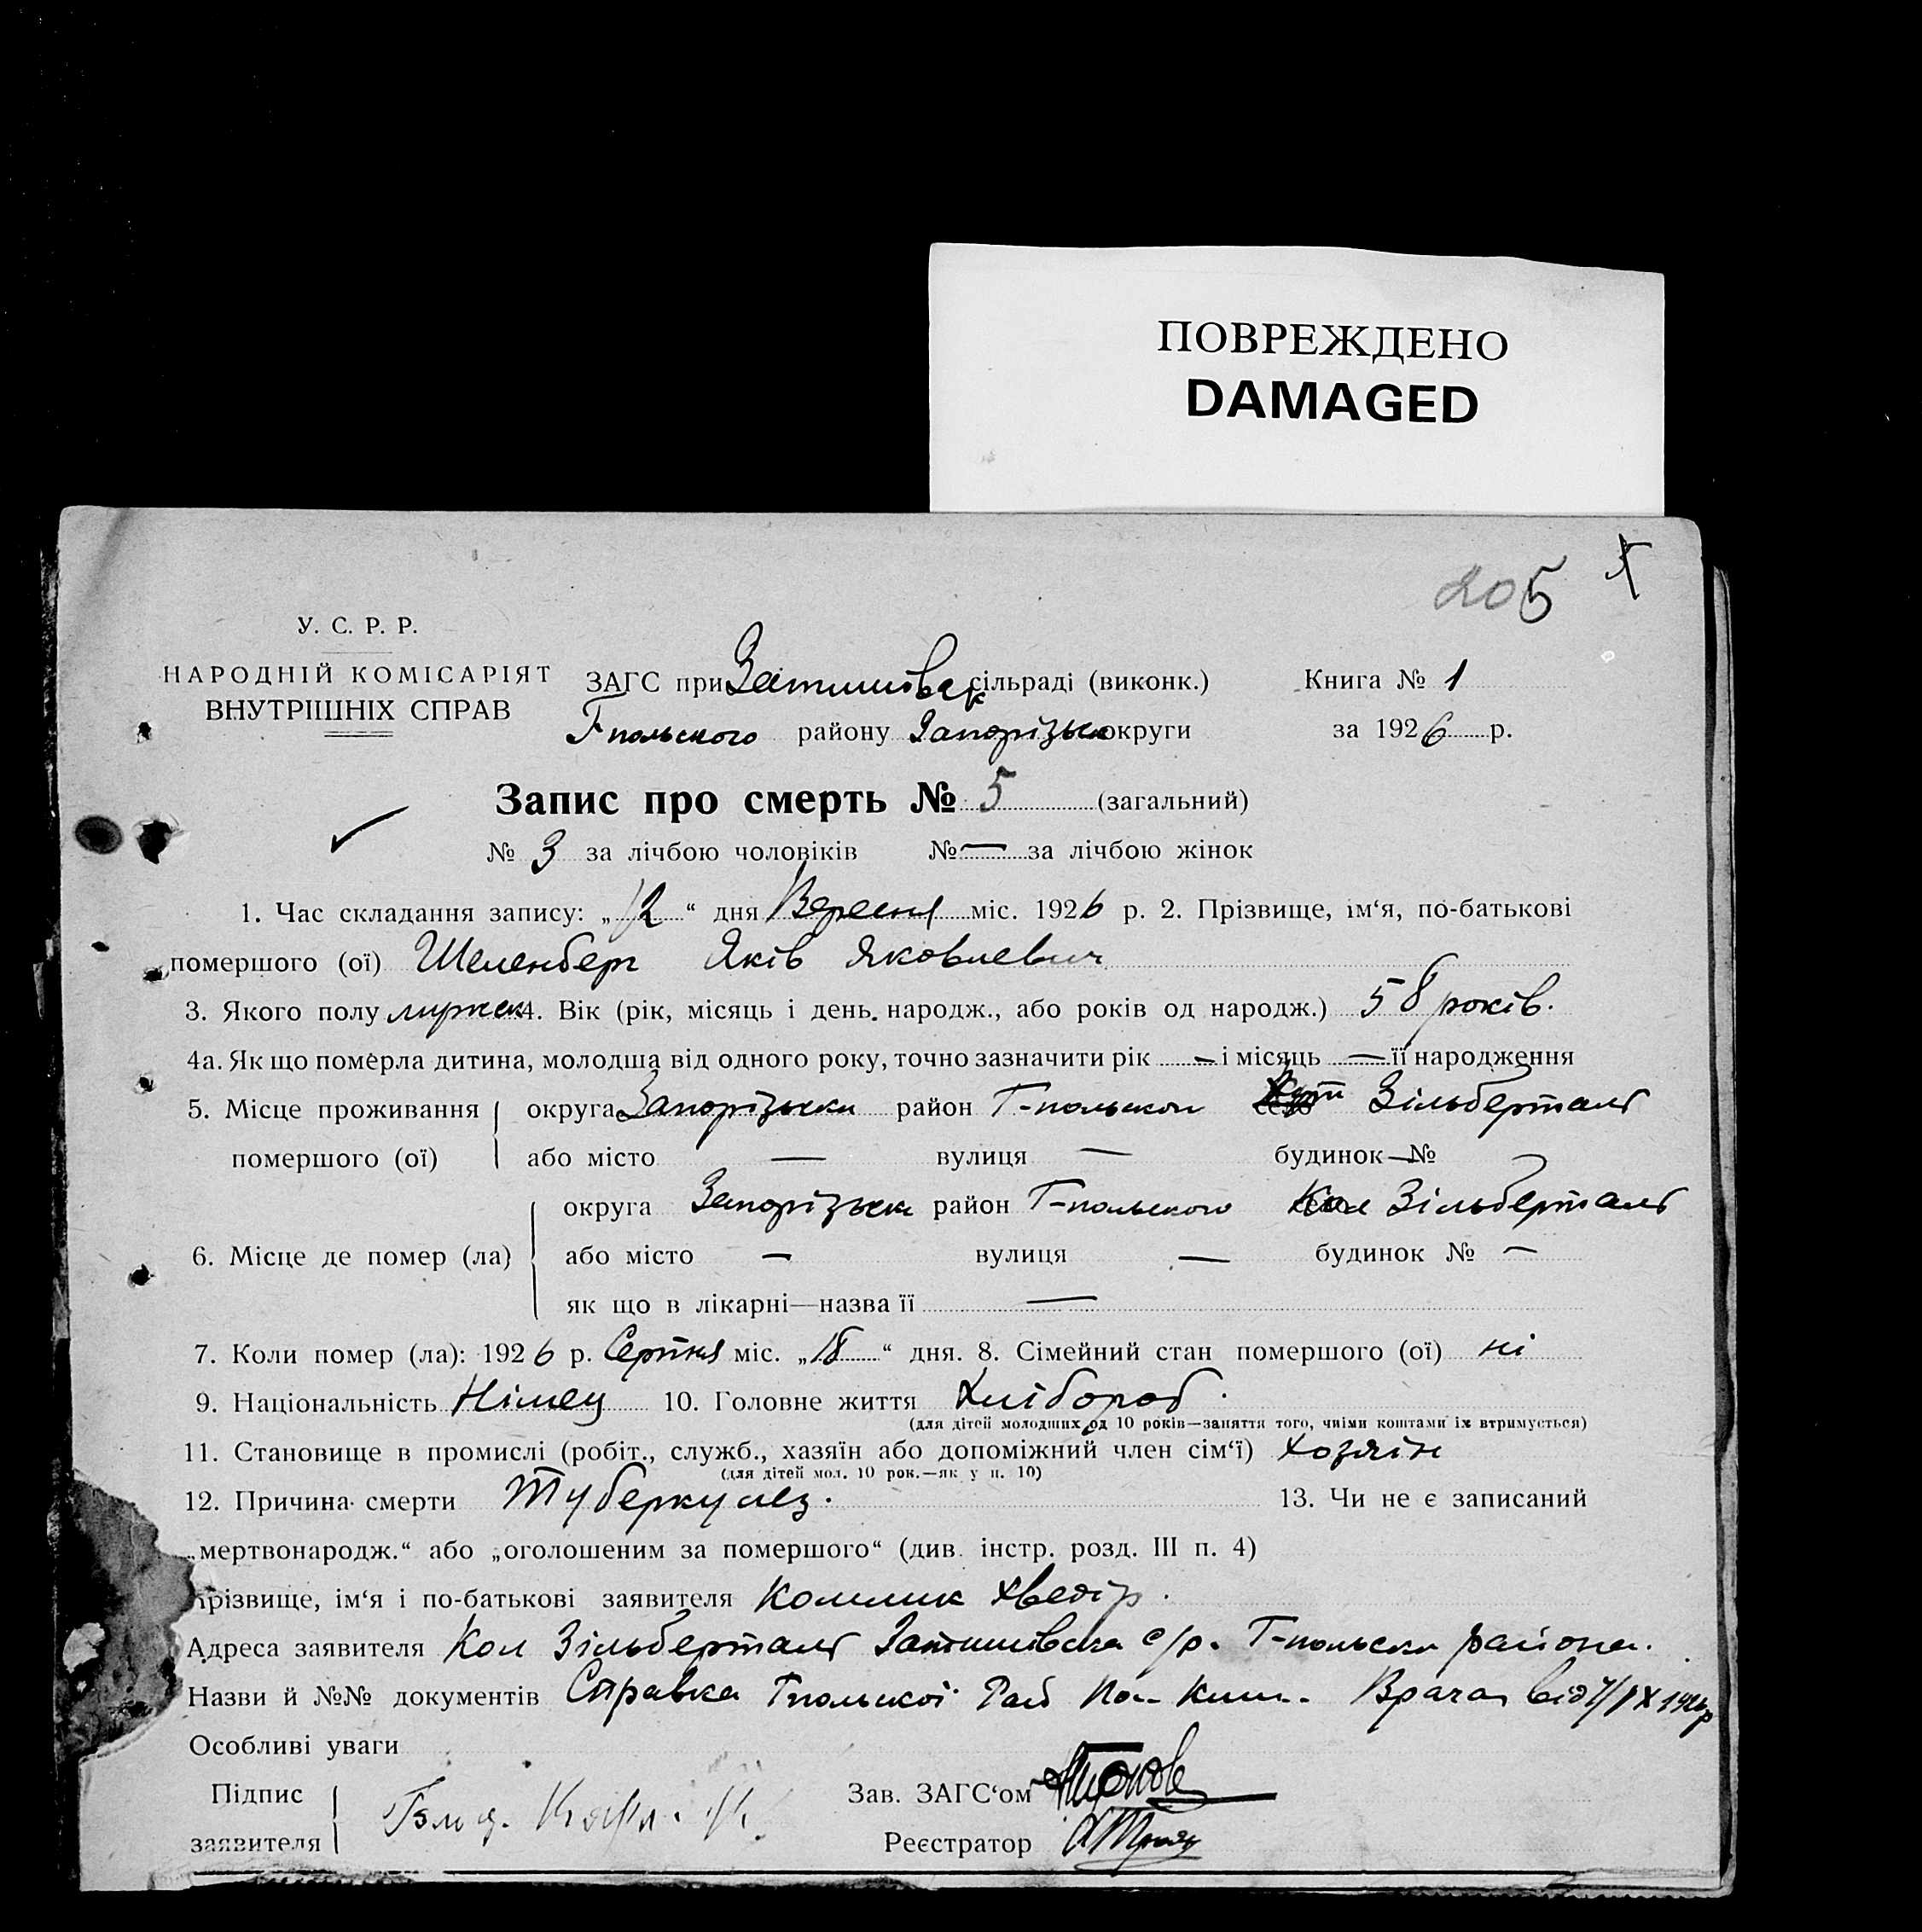 ПОВРЕЖДЕНО
DAMAGED
205
У. С. Р. Р.
НАРОДНІЙ КОМІСАРІЯТ
ВНУТРІШНІХ СПРАВ
ЗАГС при Затишовск сільраді (виконк.)
Книга № 1
Г-польского району Запорізько округи
за 1926 р.
Запис про смерть № 5 (загальний)
№ 3 за лічбою чоловіків № — за лічбою жінок
1. Час складання запису: „12“ дня Вересня міс. 1926 р. 2. Прізвище, ім‘я, по-батькові
помершого (ої) Шеленберг Яків Яковлевич
3. Якого полу мужск 4. Вік (рік, місяць і день народж., або років од народж.) 58 років.
4а. Як що померла дитина, молодша від одного року, точно зазначити рік — і місяць — її народження
5. Місце проживання помершого (ої) округа Запорізьски район Г-польскои Зільберталь
або місто — вулиця — будинок — №
6. Місце де помер (ла) округа Запорізьск район Г-польского Кол Зільберталь
або місто — вулиця — будинок № —
як що в лікарні—назва її —
7. Коли помер (ла): 1926 р. Серпня міс. „18“ дня. 8. Сімейний стан помершого (ої) ні
9. Національність Німец 10. Головне життя Хлібороб.
(для дітей молодших од 10 років—заняття того, чиїми коштами їх втримується)
11. Становище в промислі (робіт., служб., хазяїн або допоміжний член сім‘ї) хозяїн
(для дітей мол. 10 рок.—як у п. 10)
12. Причина смерти Туберкулез. 13. Чи не є записаний
„мертвонародж.“ або „оголошеним за помершого“ (див. інстр. розд. III п. 4)
Прізвище, ім‘я і по-батькові заявителя Хведір.
Адреса заявителя Кол Зільберталь Затишовска с/р. Г-польски района.
Назви й №№ документів Справка Гпольскої Врача від
Особливі уваги
Підпис заявителя
Зав. ЗАГС‘ом
Реєстратор